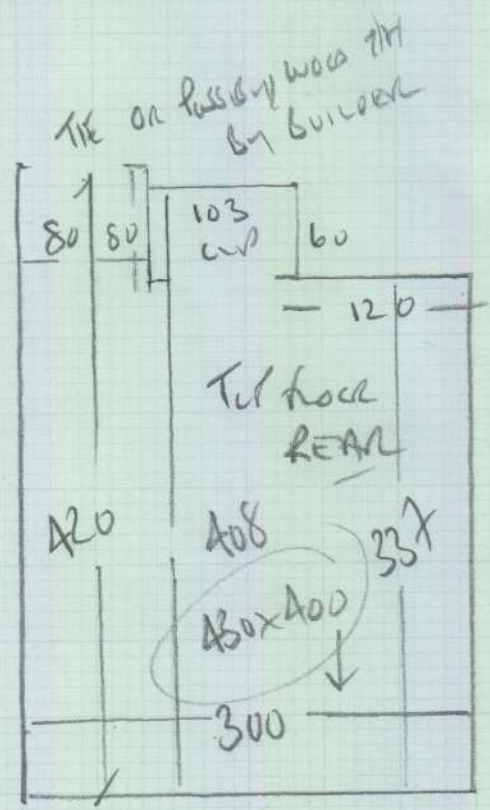 TILE OR POSSIBLY WOOD
BY BUILDER
80 80 103 60
CUP
120
TOP FLOOR
REAR
420 408 337
430x400
300